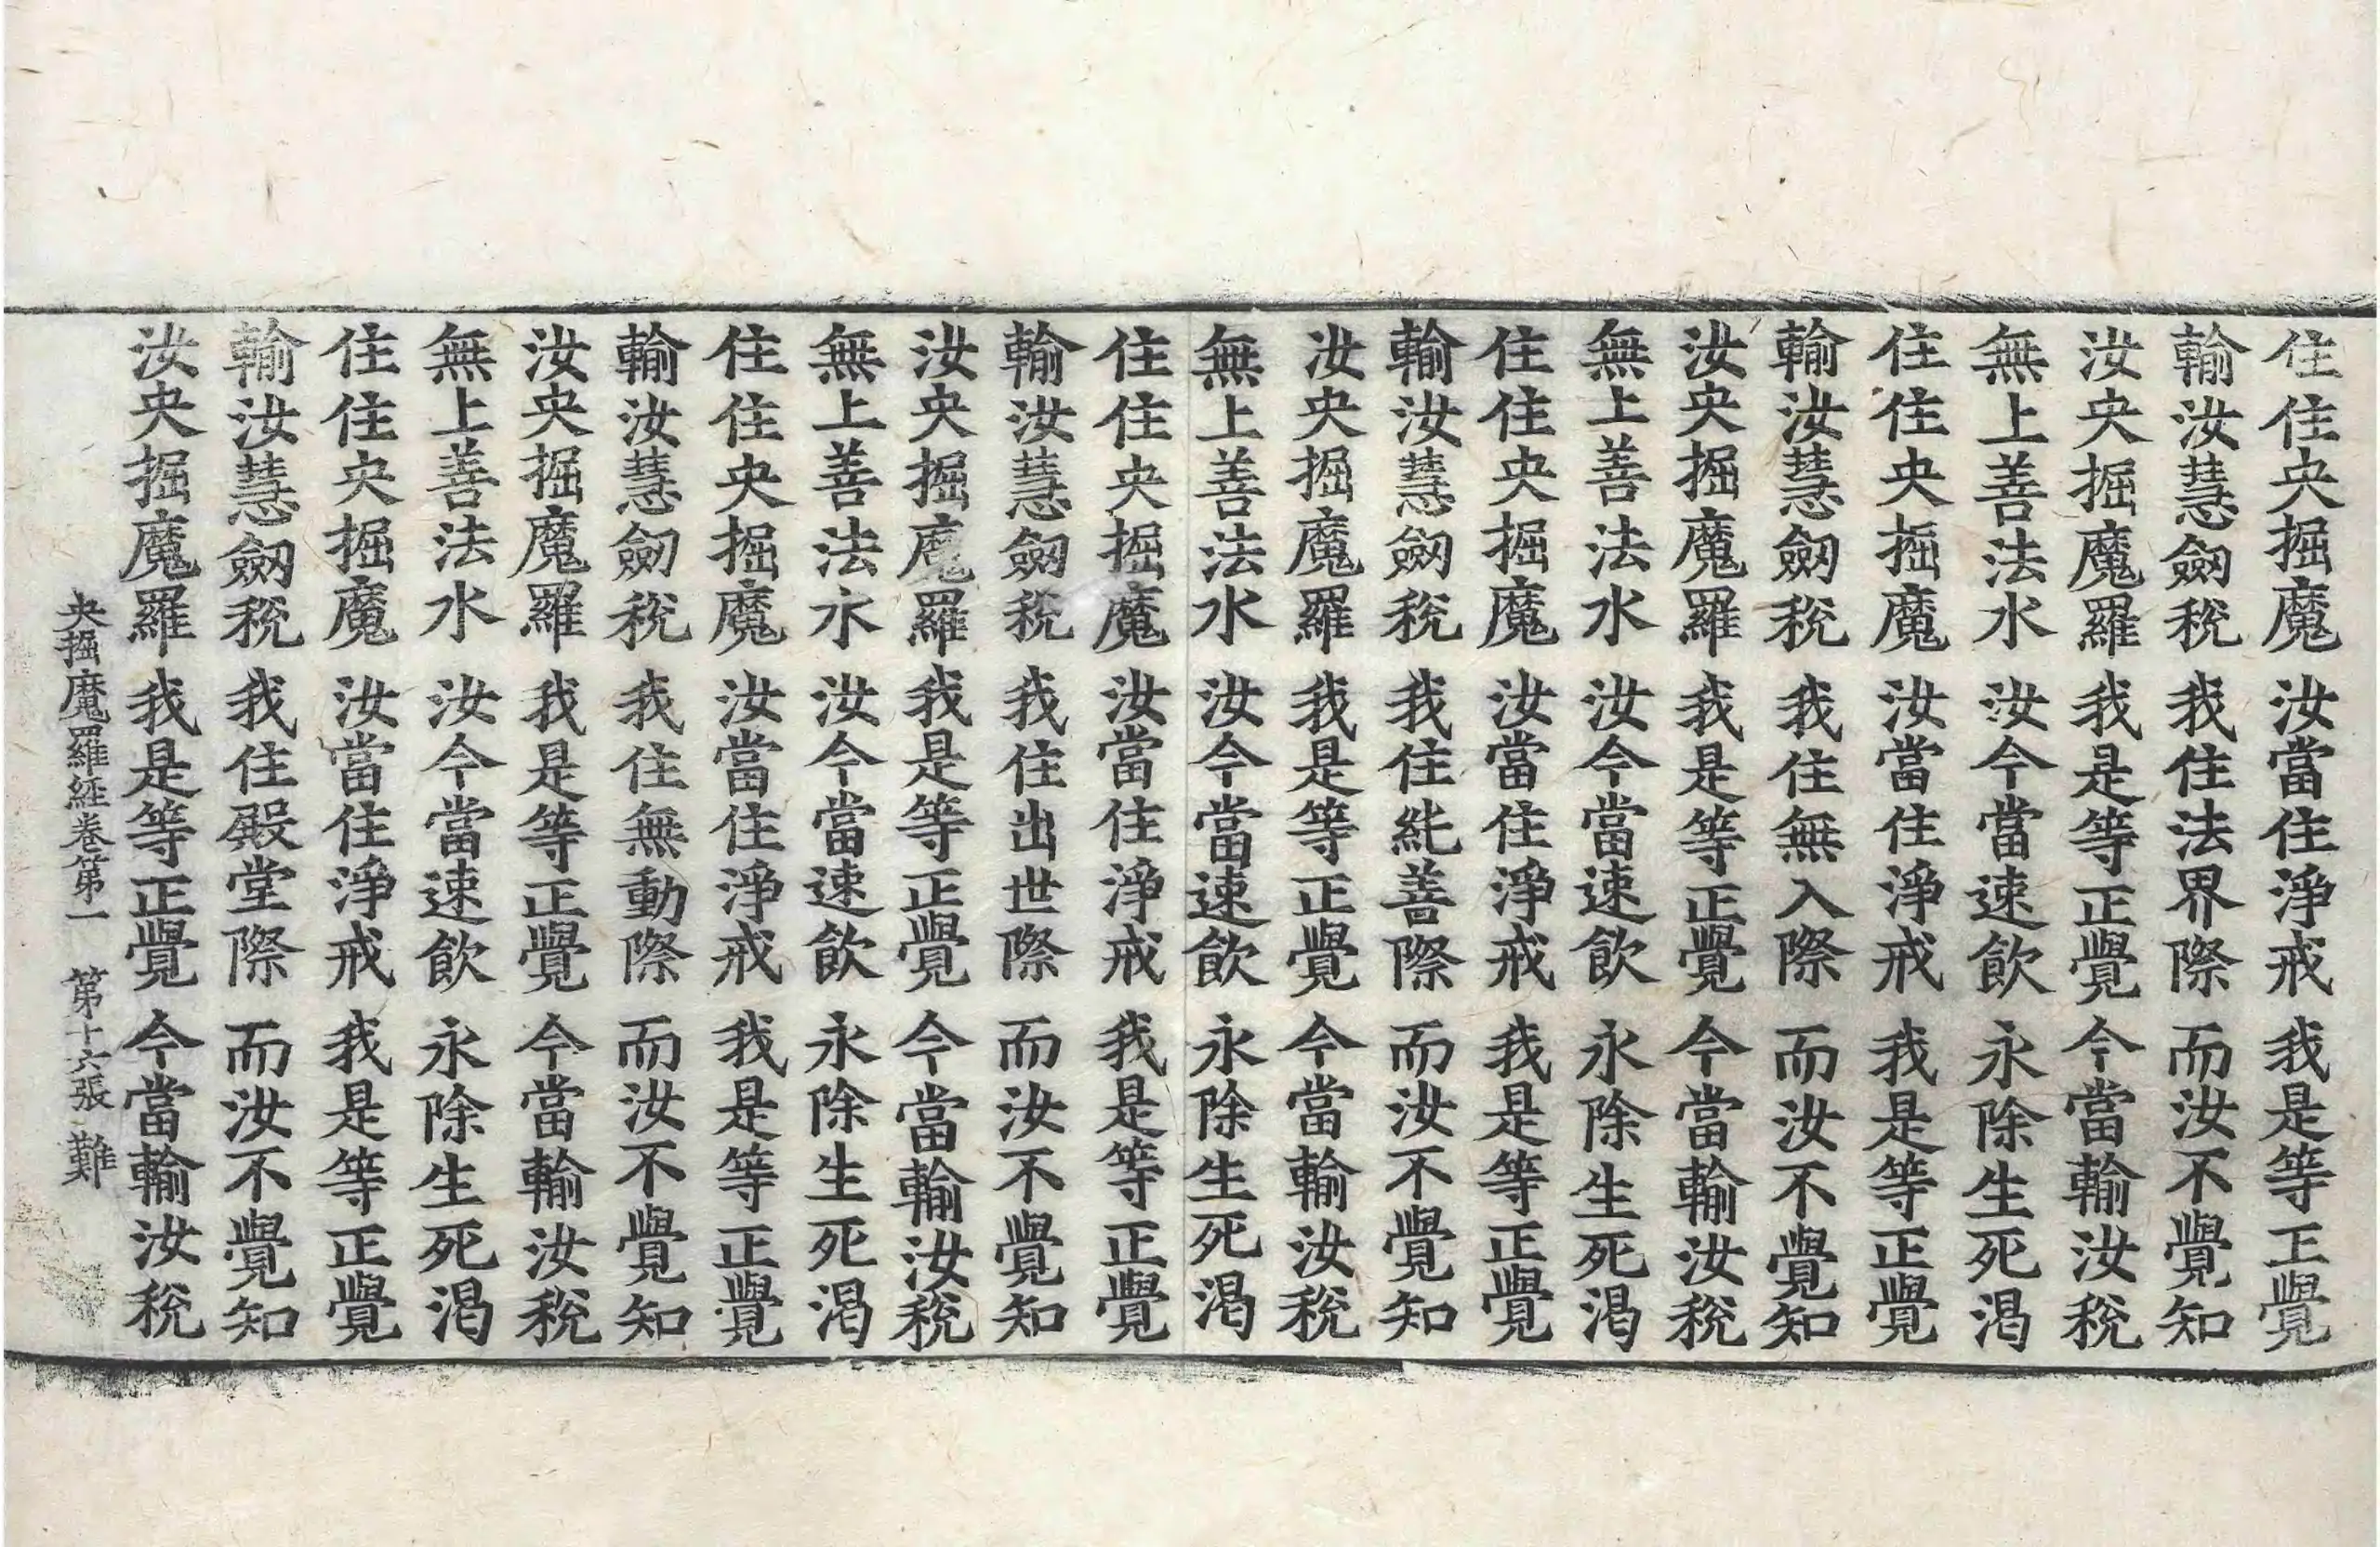 住住央掘魔 汝當住淨戒 我是等正覺
輸汝慧劒稅 我住法界際 而汝不覺知
汝央掘魔羅 我是等正覺 今當輸汝稅
無上善法水 汝今當速飲 永除生死渴
住住央掘魔 汝當住淨戒 我是等正覺
輸汝慧劒稅 我住無入際 而汝不覺知
汝央掘魔羅 我是等正覺 今當輸汝稅
無上善法水 汝今當速飲 永除生死渴
住住央掘魔 汝當住淨戒 我是等正覺
輸汝慧劒稅 我住純善際 而汝不覺知
汝央掘魔羅 我是等正覺 今當輸汝稅
無上善法水 汝今當速飲 永除生死渴
住住央掘魔 汝當住淨戒 我是等正覺
輸汝慧劒稅 我住出世際 而汝不覺知
汝央掘魔羅 我是等正覺 今當輸汝稅
無上善法水 汝今當速飲 永除生死渴
住住央掘魔 汝當住淨戒 我是等正覺
輸汝慧劒稅 我住無動際 而汝不覺知
汝央掘魔羅 我是等正覺 今當輸汝稅
無上善法水 汝今當速飲 永除生死渴
住住央掘魔 汝當住淨戒 我是等正覺
輸汝慧劒稅 我住殿堂際 而汝不覺知
汝央掘魔羅 我是等正覺 今當輸汝稅
央掘魔羅経卷第一 第十六張 難